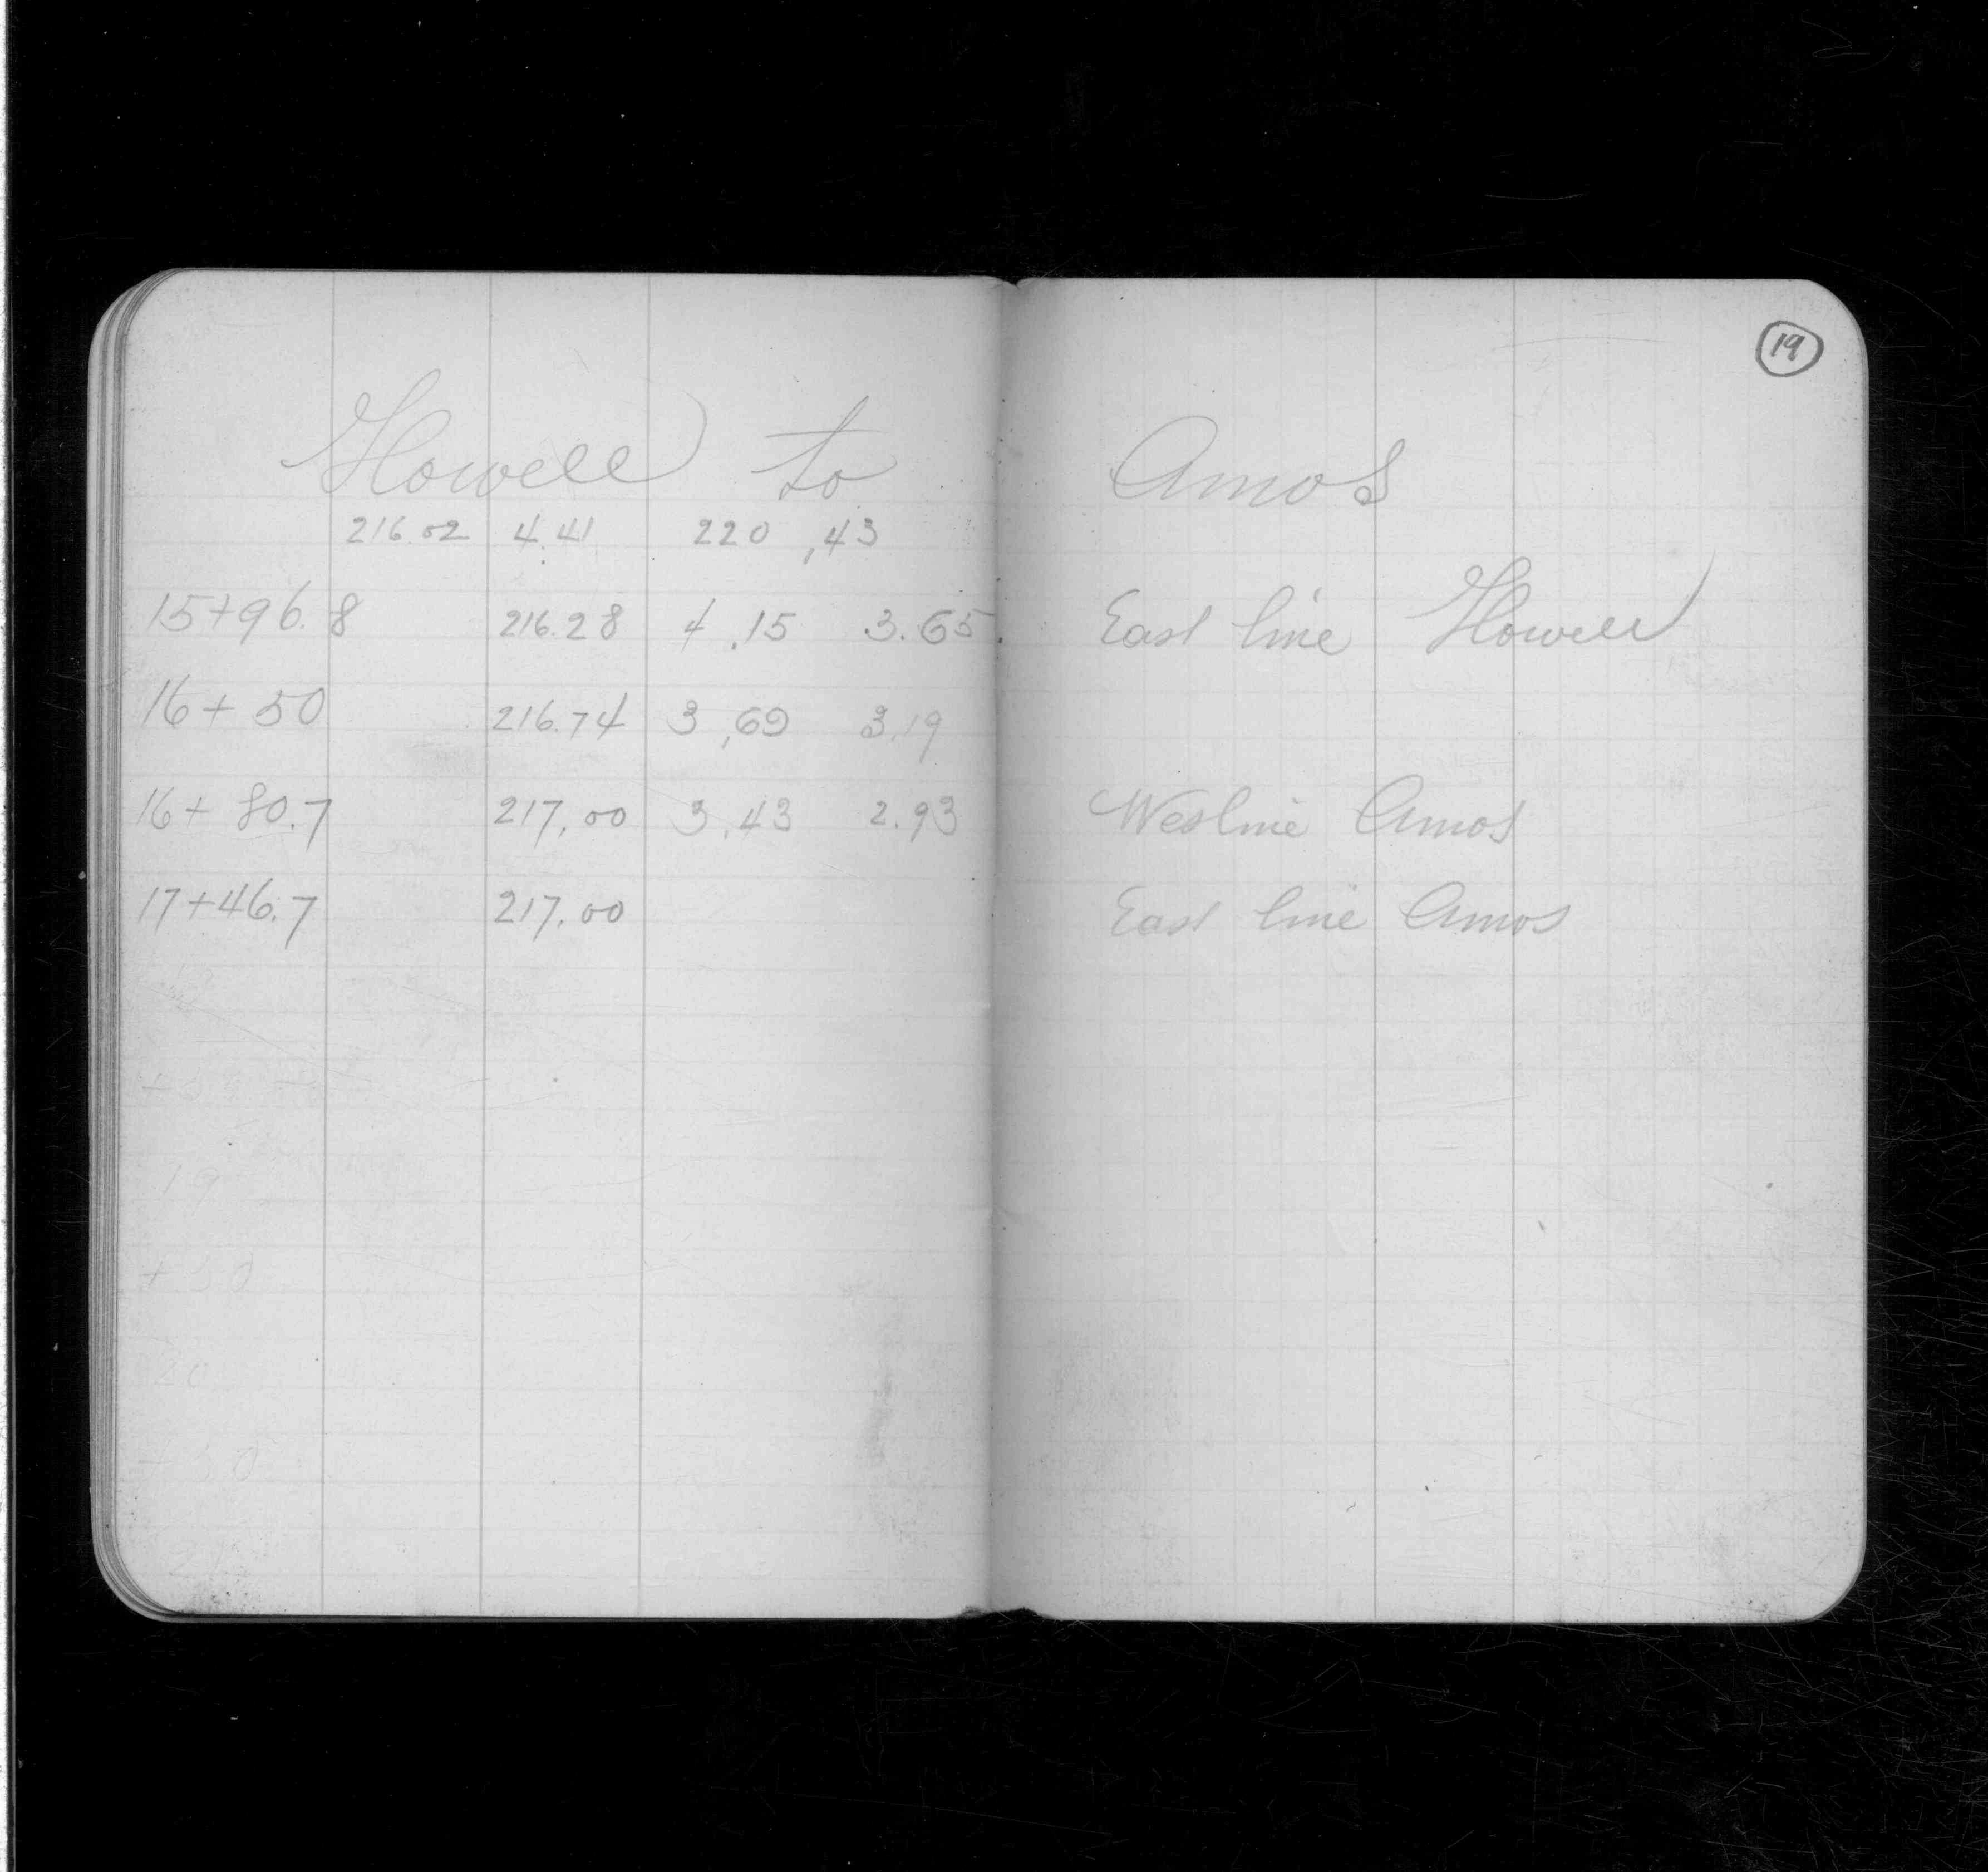 19
Howell to Amos
216.02 4.41 220,43
15+96.8 216.28 4.15 3.65 East line Howell
16+50 216.74 3,69 3.19
16+80.7 217.00 3.43 2.93 Wesline Amos
17+46.7 217.00 East line Amos
19
+50
20
+50